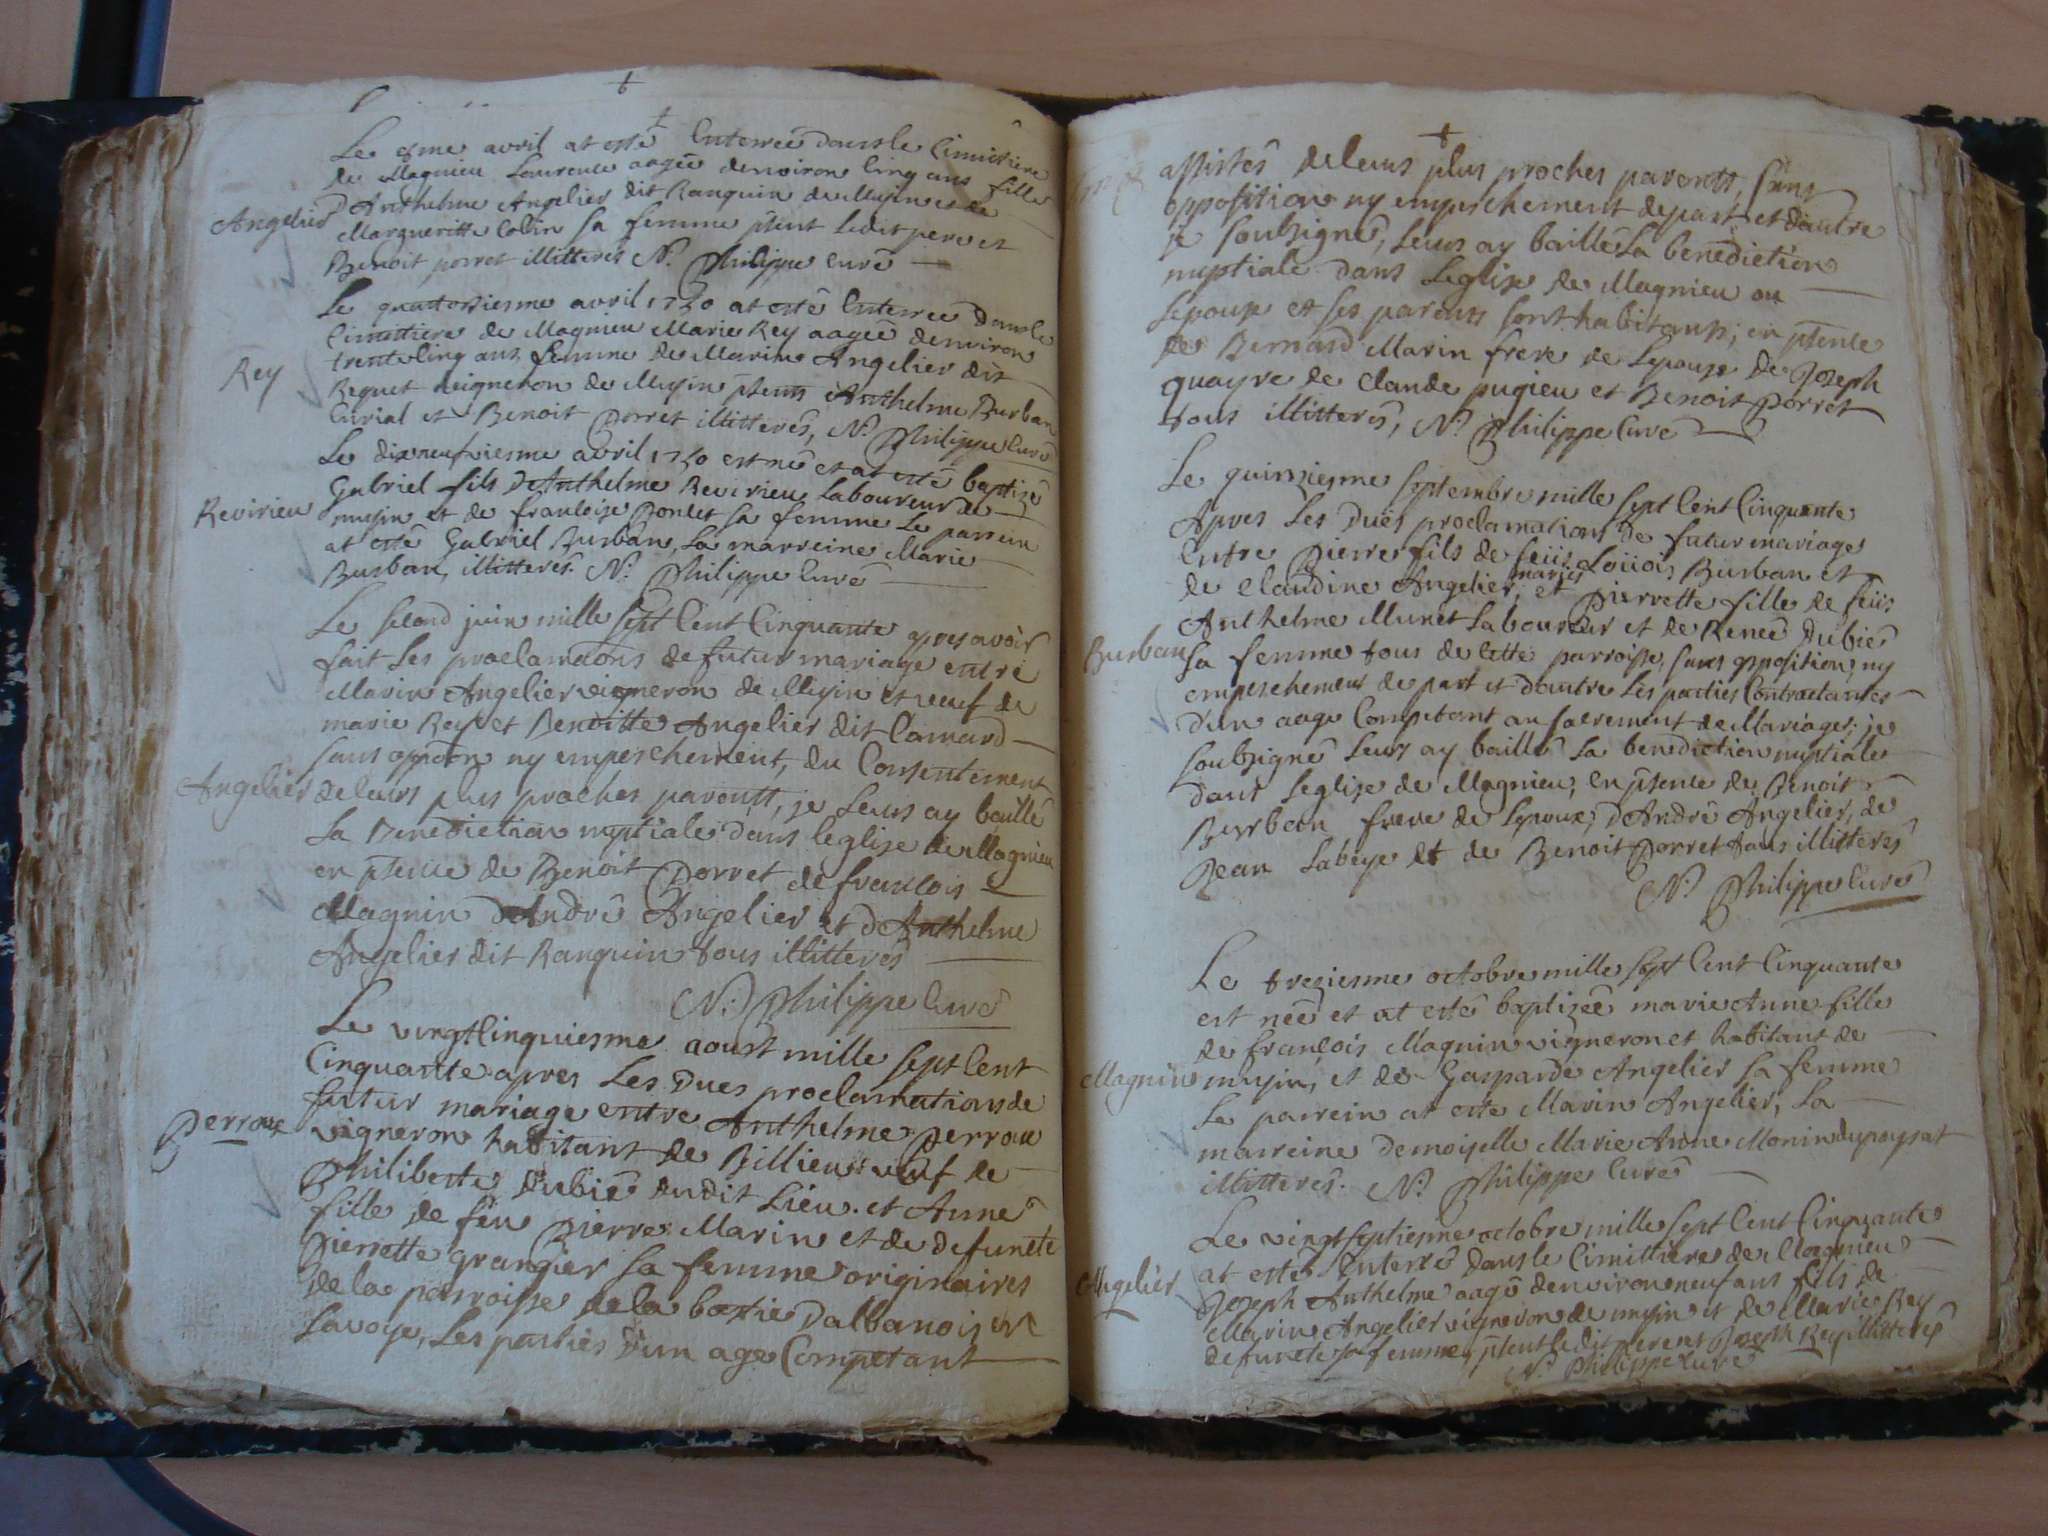 Le me avril at esté Enterrée dans le Cimittiere
de Magnieu Laurence aagée denviron Cinq ans fille
Angelier
D'Anthelme Angelier dit Ranquin de Musin et de
Margueritte Colin sa femme pñt ledit pere et
Benoit porret illitteres N. Philippe Curé
Le quattorziesme avril 1750 at esté Enterrée dans le
Cimittiere de Magnieu Marie Rey aagée denviron
Rey
trente Cinq ans femme de Marin Angelier dit
Requet vigneron de Musin pñts Anthelme Burban
Curial et Benoit Porret illitterés, N. Philippe Curé
Le dixneufviesme avril 1750 est né et at esté baptisé
Gabriel fils D'Anthelme Revirieu Laboureur de
Revirieu
musin et de francoise Bonlet sa femme Le parrein
at esté Gabriel Burban, La marreine Marie
Burban, illitterés. N. Philippe Curé
Le second juin mille sept Cent Cinquante apres avoir
fait Les proclamaõns de futur mariage entre
Marin Angelier vigneron de Musin et veuf de
marie Rey et Benoitte Angelier dit Camard
sans oppõn ny empeschement, du Consentement
Angelier
de leurs plus proches parentt, je Leurs ay baillé
La Benediction nuptiale dans leglise de Magnieu
en pñce de Benoit Porret de francois
Magnin d'André Angelier et d'Anthelme
Angelier dit Ranquin tous illitterés
N. Philippe Curé
Le vingtcinquiesme aoust mille sept Cent
Cinquante apres Les Dues proclamations de
futur mariage entre Anthelme Perroux
Perroux
vigneron habittant de Billieu veuf de
Philiberte Dubié dudit Lieu et Anne
fille de feu Pierre Marin et de defuncte
Pierrette grangier sa femme originaires
de la parroisse de la bastie Dalbanois en
Savoye, Les parties d'un age Competant
assistés de leurs plus proches parentt, sans
opposition ny empeschement de part et dautre
je soubsigné, Leurs ay baillé La benediction
nuptiale dans Leglise de Magnieu ou
Lepoux et ses parents sont habitants; en pñce
de Bernard Marin frere de Lepouse de Joseph
quayre de Claude pugieu et Benoit Porret
tous illitterés, N. Philippe Curé
Le quinziesme septembre mille sept Cent Cinquante
Apres Les Dues proclamations de futur mariage
Entre Pierre fils de feus Loüois Burban et
de Claudine Angelier, mariés et Pierrette fille de feüs
Anthelme Munet Laboureur et de Reneé Dubié
Burban
sa femme tous de Cette parroisse, sans opposition, ny
empeschement de part et dautre Les parties Contractantes
d'un aage Competant au sacrement de Mariage; je
soubsigné Leurs ay baillé La benediction nuptiale
dans Leglise de Magnieu, en pñce de Benoit
Burban frere de Lepoux, d'André Angelier, de
Jean Labeye et de Benoit Porret tous illitterés
N. Philippe Curé
Le treziesme octobre mille sept Cent Cinquante
est née et at esté baptizée marie Anne fille
de françois Magnin vigneron et habitant de
Magnin
musin, et de Gasparde Angelier sa femme
Le parrein at esté Marin Angelier, La
marreine demoiselle Marie Anne Monin
illitterés. N. Philippe Curé
Le vingtseptiesme octobre mille sept Cent Cinquante
at esté Enterré dans le Cimittiere de Magnieu
Angelier
Joseph Anthelme aagé denviron neuf ans fils de
Marin Angelier vigneron de musin et de Marie Rey
defuncte sa femme, pñt ledit pere et Joseph Rey illitterés
N. Philippe Curé